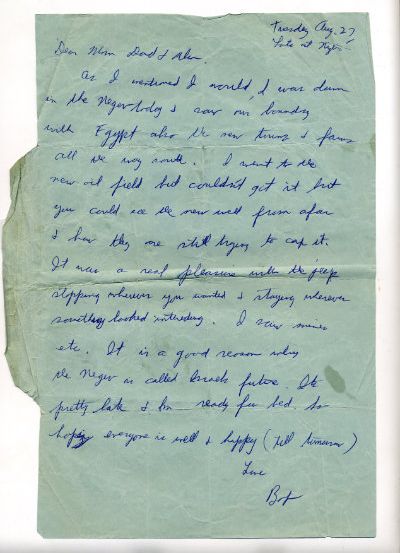 Tuesday Aug. 27
Late at Nyte
Dear Mom Dad &
As I mentioned I would, I was down
in the Negev today & saw our boundry
with Egypt also the new towns & farms
all the way south. I went to the
new oil field but couldn't get in but
you could see the new well from afar
& how they are still trying to cap it.
It was a real pleasure with the jeep
stopping wherever you wanted & staying wherever
something looked interesting. I saw mines
etc. It is a good reason why
the Negev is called Israels future. Its
pretty late & Im ready for bed. So
hoping everyone is well & happy (till tomorrow)
Love
Bob